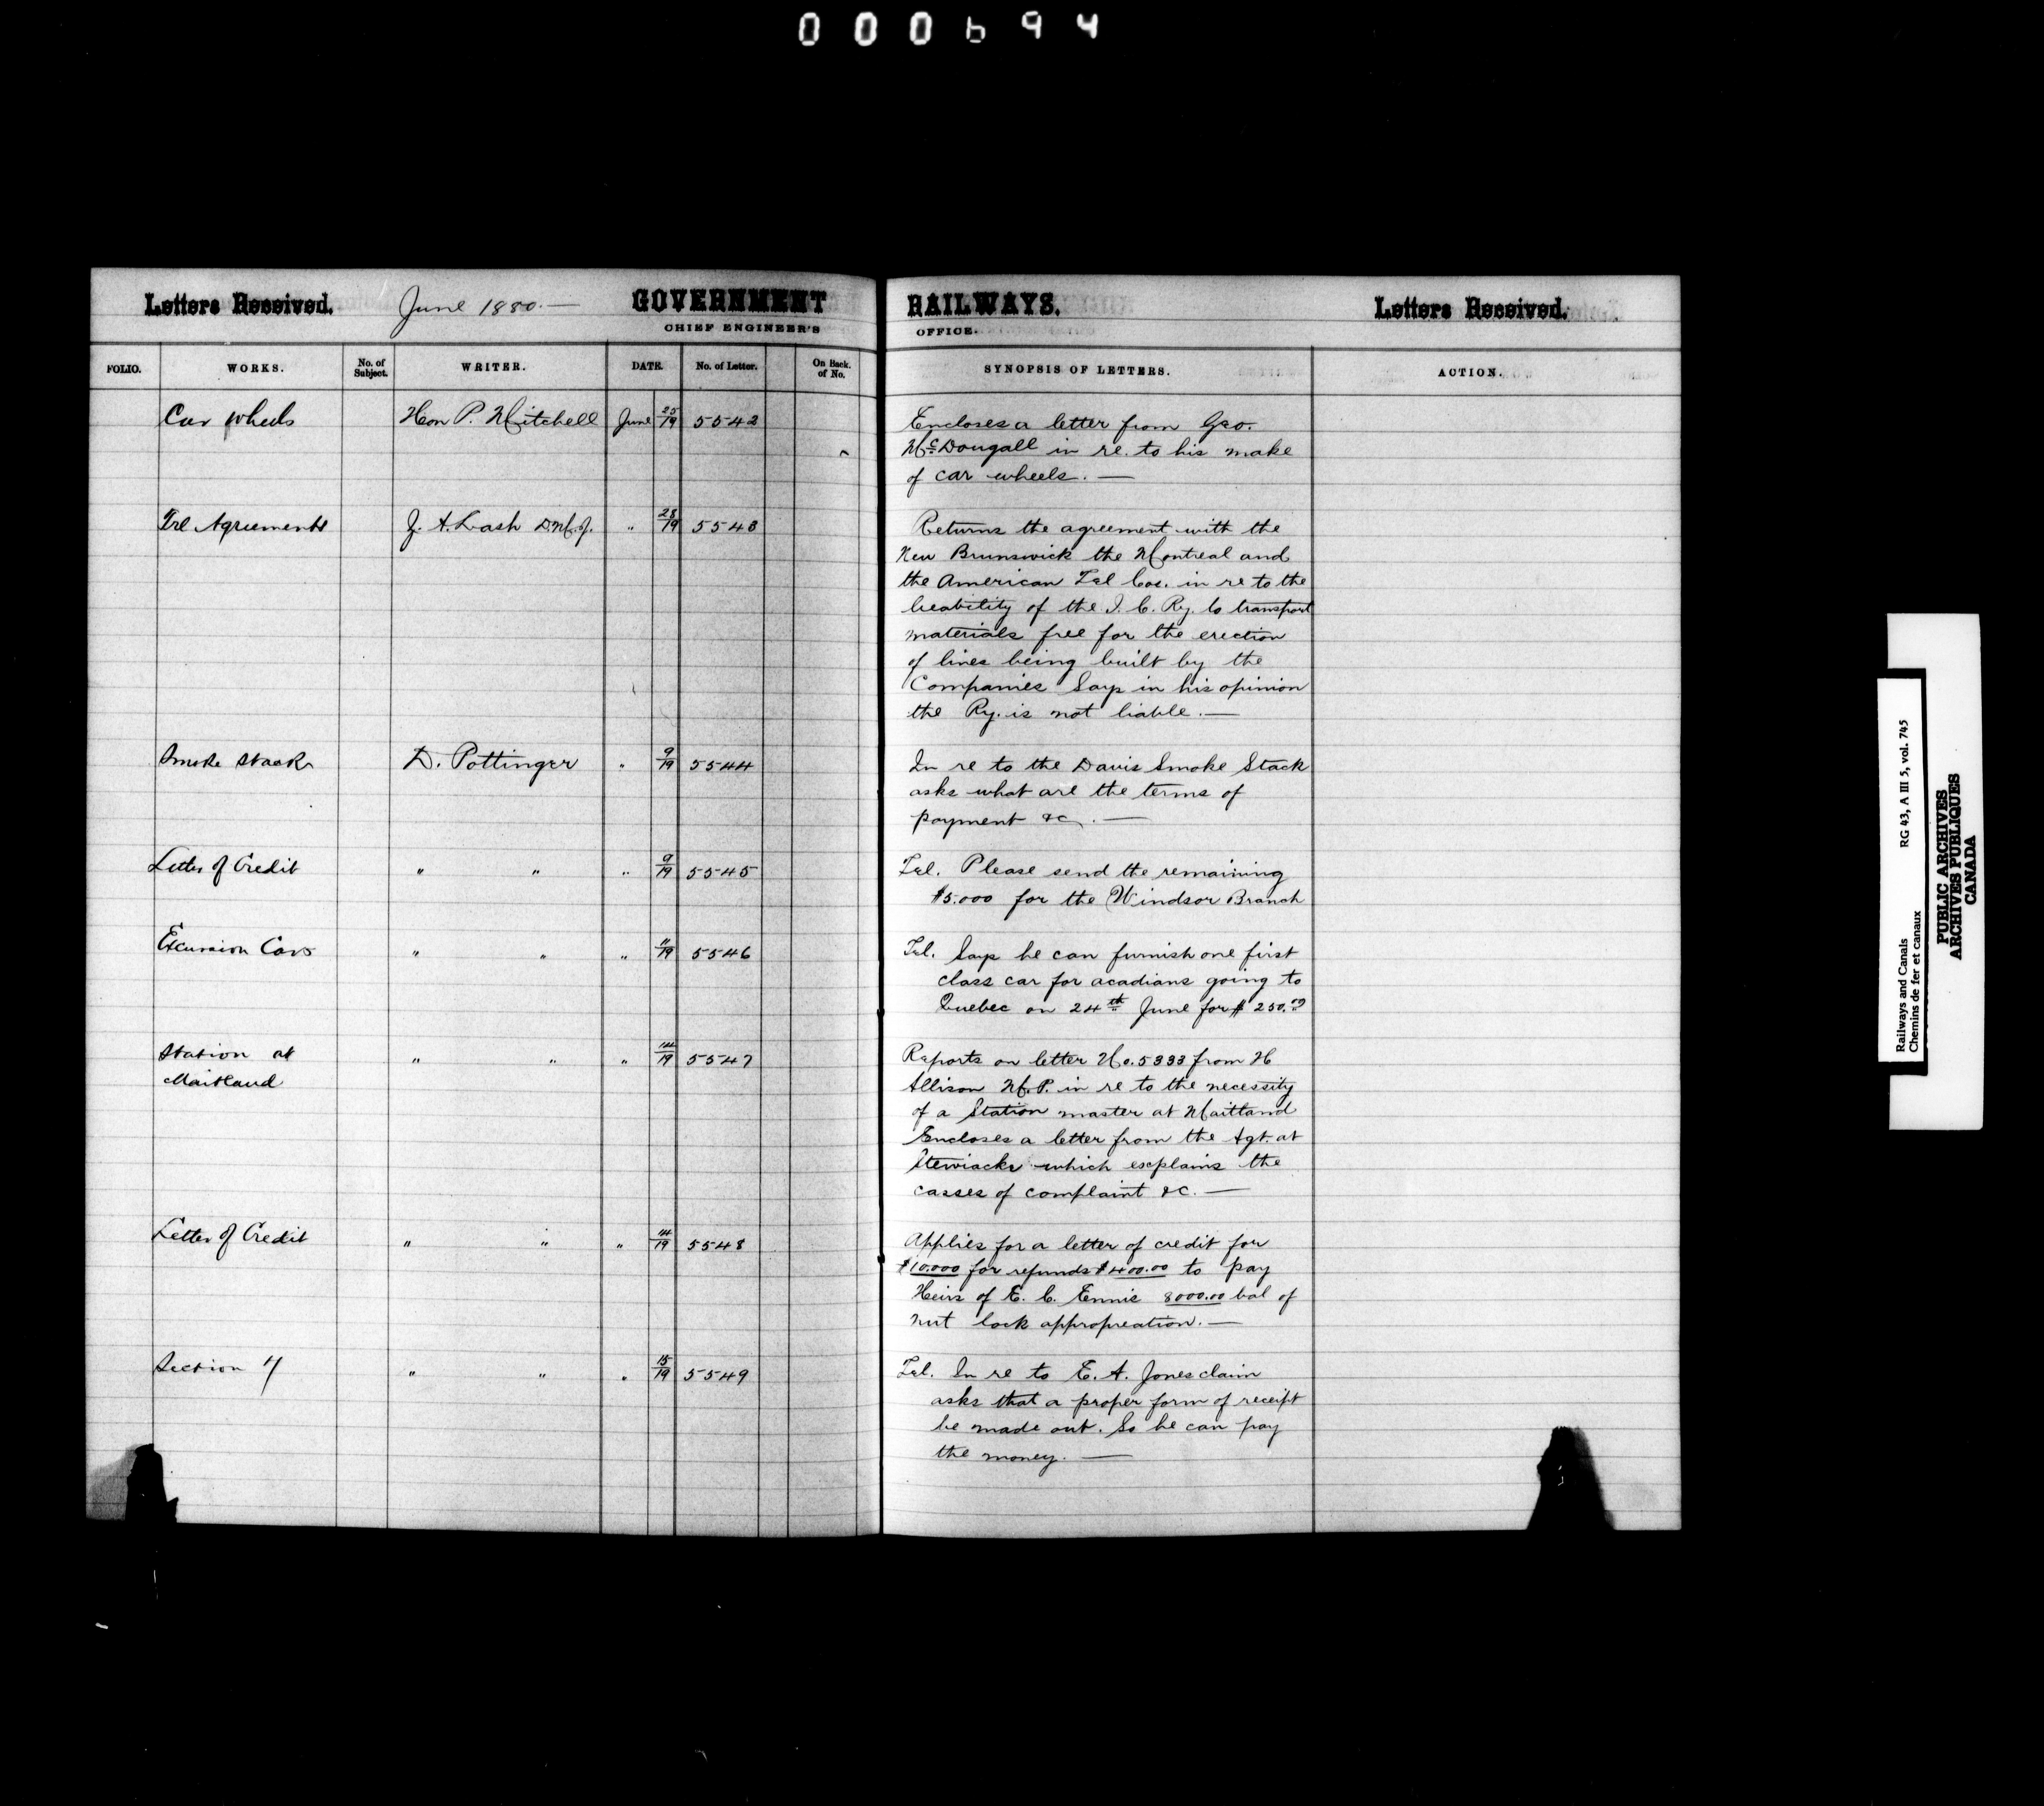 000694
Letters Received. June 1880.— GOVERNMENT RAILWAYS. Letters Received.
CHIEF ENGINEER'S OFFICE.
FOLIO. WORKS. No. of Subject. WRITER. DATE. No. of Letter. On Back of No. SYNOPSIS OF LETTERS. ACTION.
Car wheels Hon P. Mitchell June 25/19 5542 Encloses a letter from Geo.
McDougall in re. to his make
of car wheels. —
Tel Agreements J. A. Lash D.M.of J. " 28/19 5543 Returns the agreement with the
New Brunswick the Montreal and
the American Tel Cos. in re to the
lieability of the I. C. Ry. to transport
materials free for the erection
of lines being built by the
Companies Says in his opinion
the Ry. is not liable. —
Smoke Stack D. Pottinger " 9/19 5544 In re to the Davis Smoke Stack
asks what are the terms of
payment &c. —
Letter of Credit " " " 9/19 5545 Tel. Please send the remaining
$5.000 for the Windsor Branch
Excursion Cars " " " 11/19 5546 Tel. Says he can furnish one first
class car for acadians going to
Quebec on 24th June for $250.00
Station at Maitland " " " 14/19 5547 Reports on letter No. 5333 from H
Allison M.P. in re to the necessity
of a Station master at Maitland
Encloses a letter from the Agt. at
Stewiacke which explains the
casses of complaint &c. —
Letter of Credit " " " 14/19 5548 Applies for a letter of credit for
$10.000 for refunds $400.00 to pay
Heirs of E. C. Ennis 8000.00 bal of
nut lock appropreation. —
Section 4 " " " 15/19 5549 Tel. In re to E. A. Jones claim
asks that a proper form of receipt
be made out. So he can pay
the money. —
Railways and Canals RG 43, A III 5, vol. 745
Chemins de fer et canaux
PUBLIC ARCHIVES
ARCHIVES PUBLIQUES
CANADA